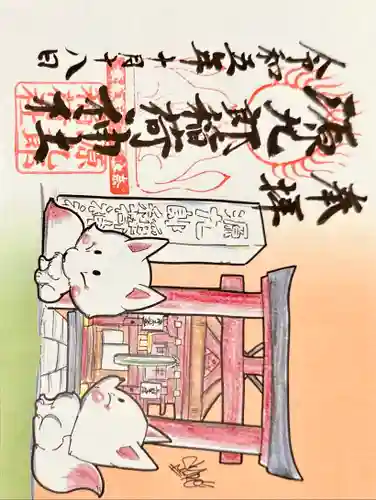 奉拝
源九郎稲荷神社
令和五年十月十八日
源九郎
稲荷神社